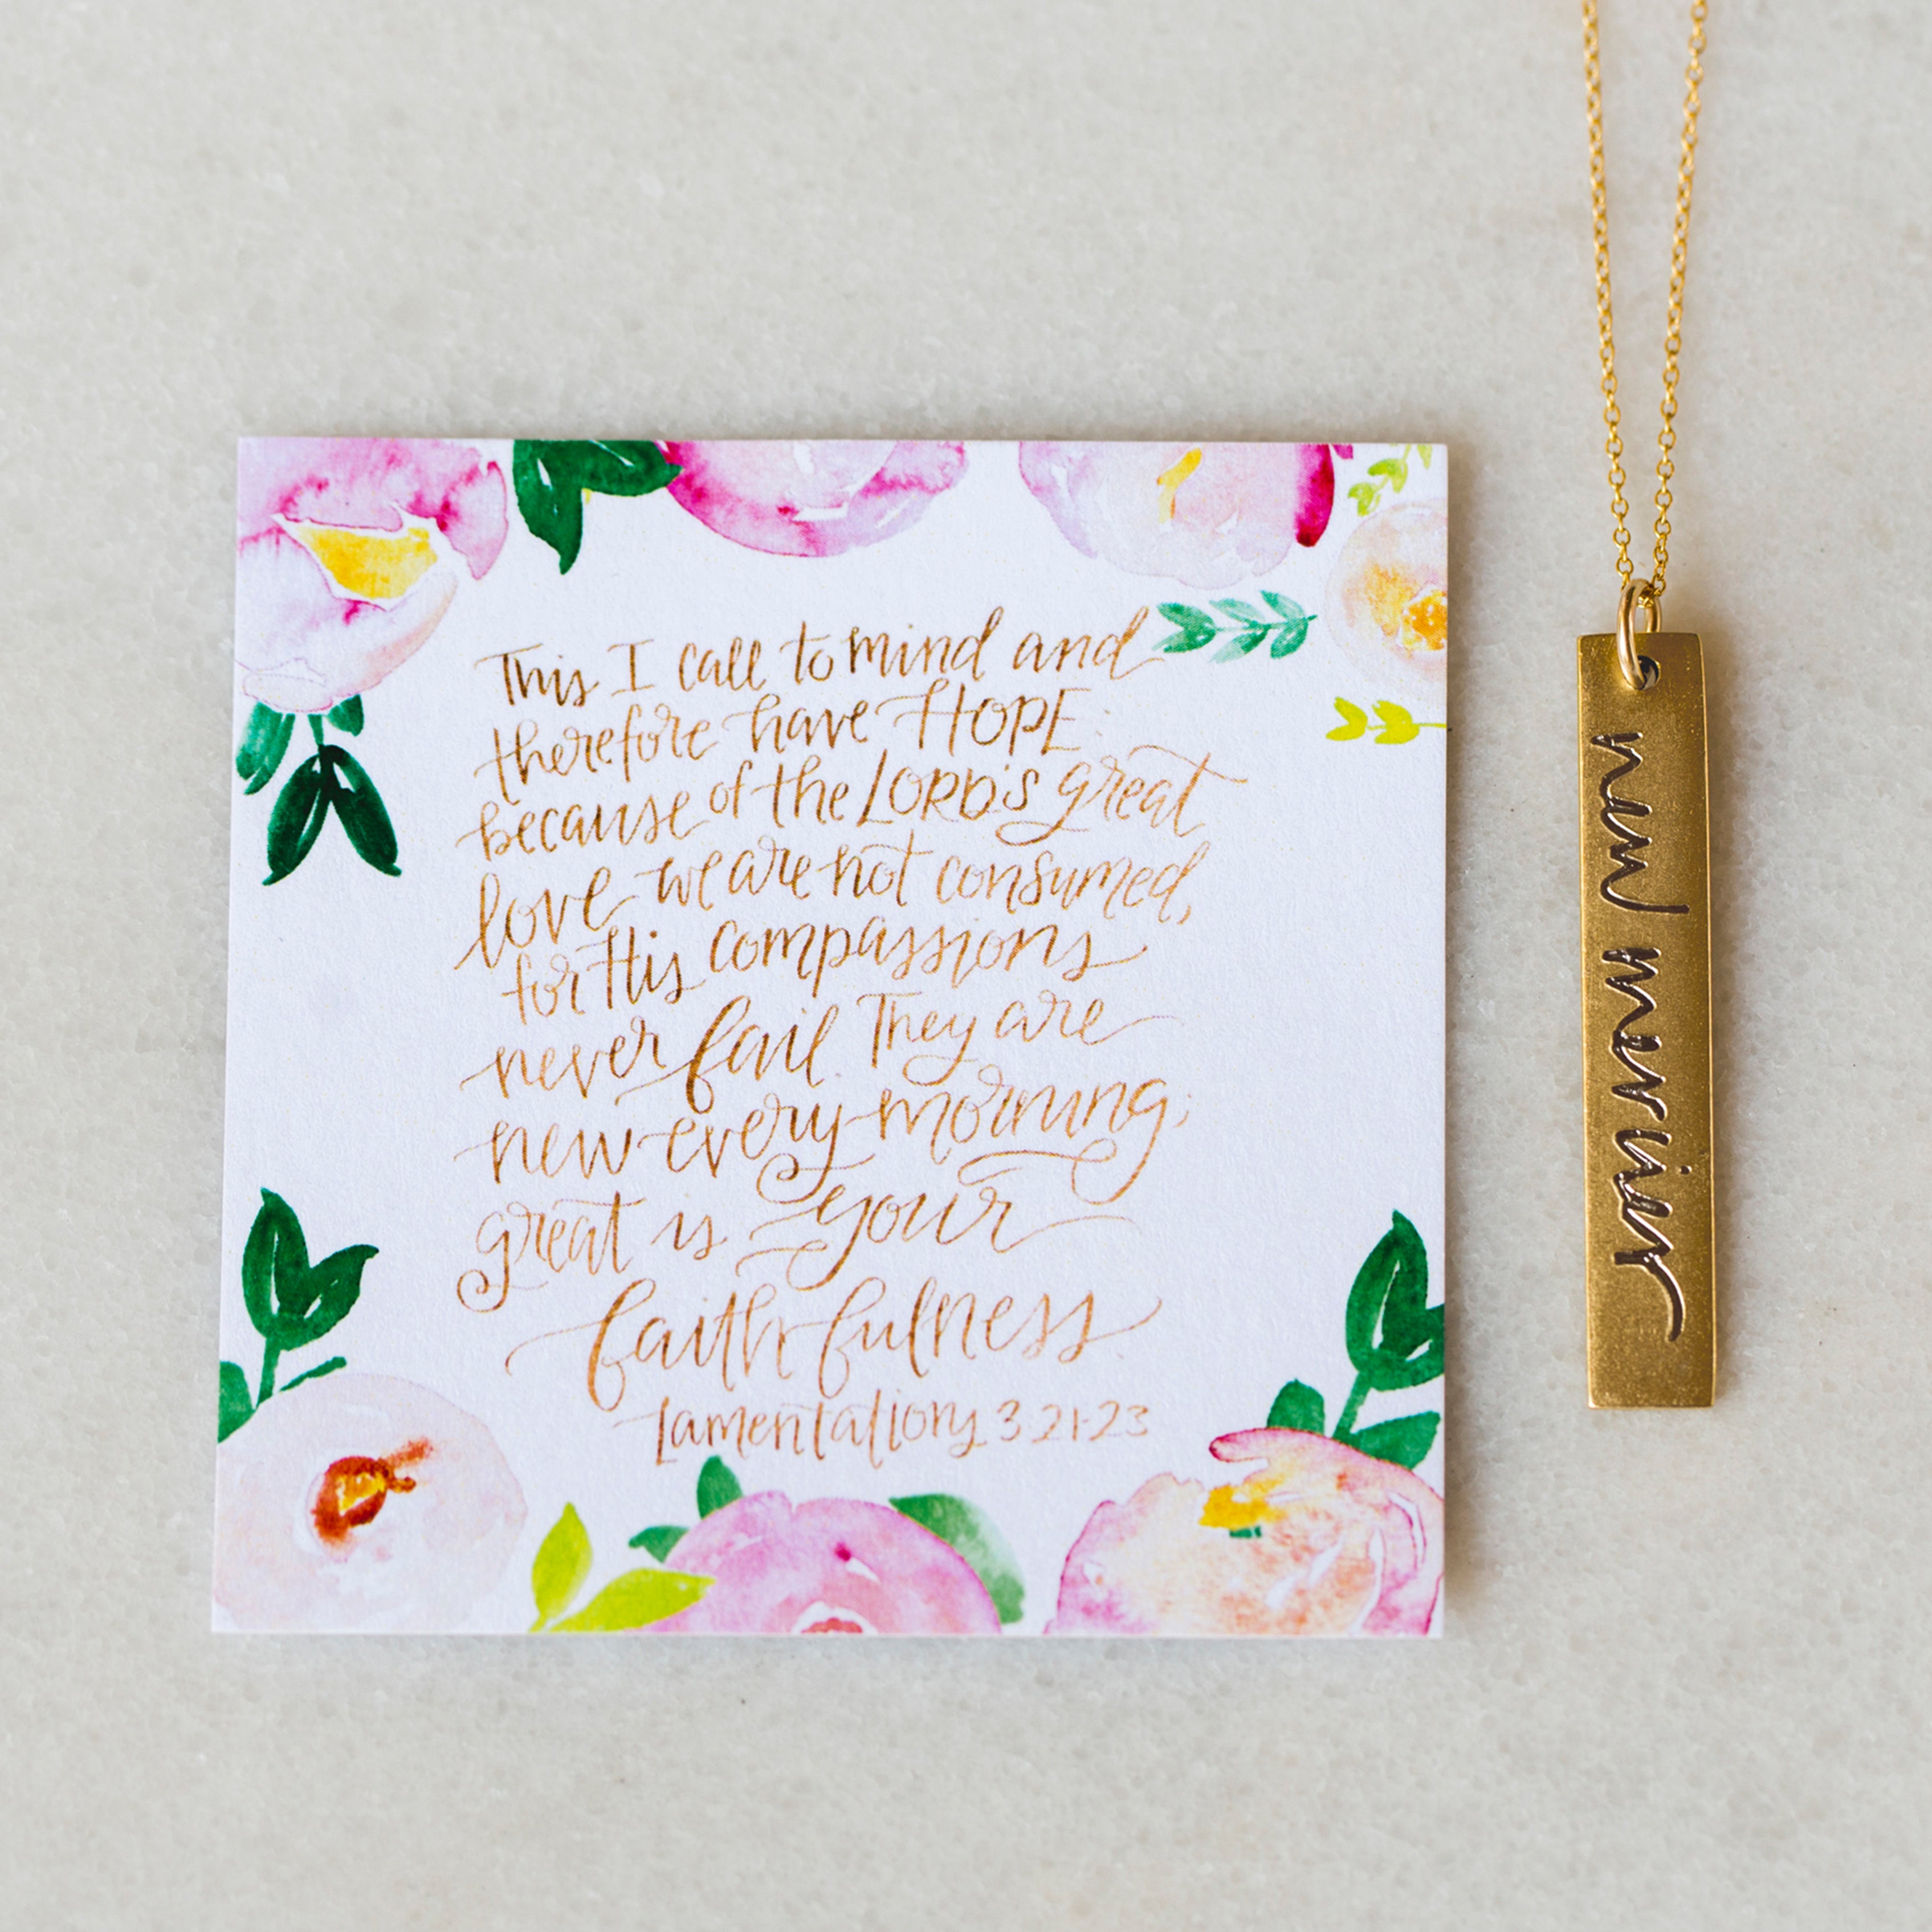 This I call to mind and
therefore have HOPE:
because of the LORD'S great
love we are not consumed,
for His compassions
never fail. They are
new every morning;
great is your
faithfulness.
Lamentations 3:21-23
new mercies